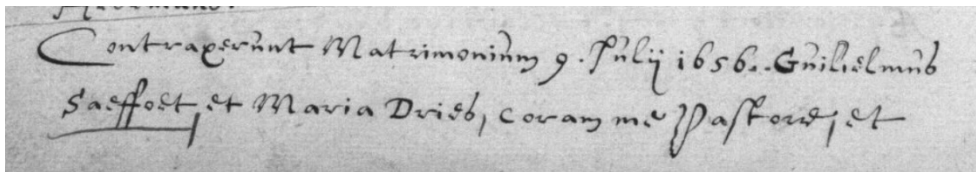 Contraxerunt Matrimonium 9. Julij 1656.. Guilielmus
Saeffoet, et Maria Dries, coram me Pastore, et